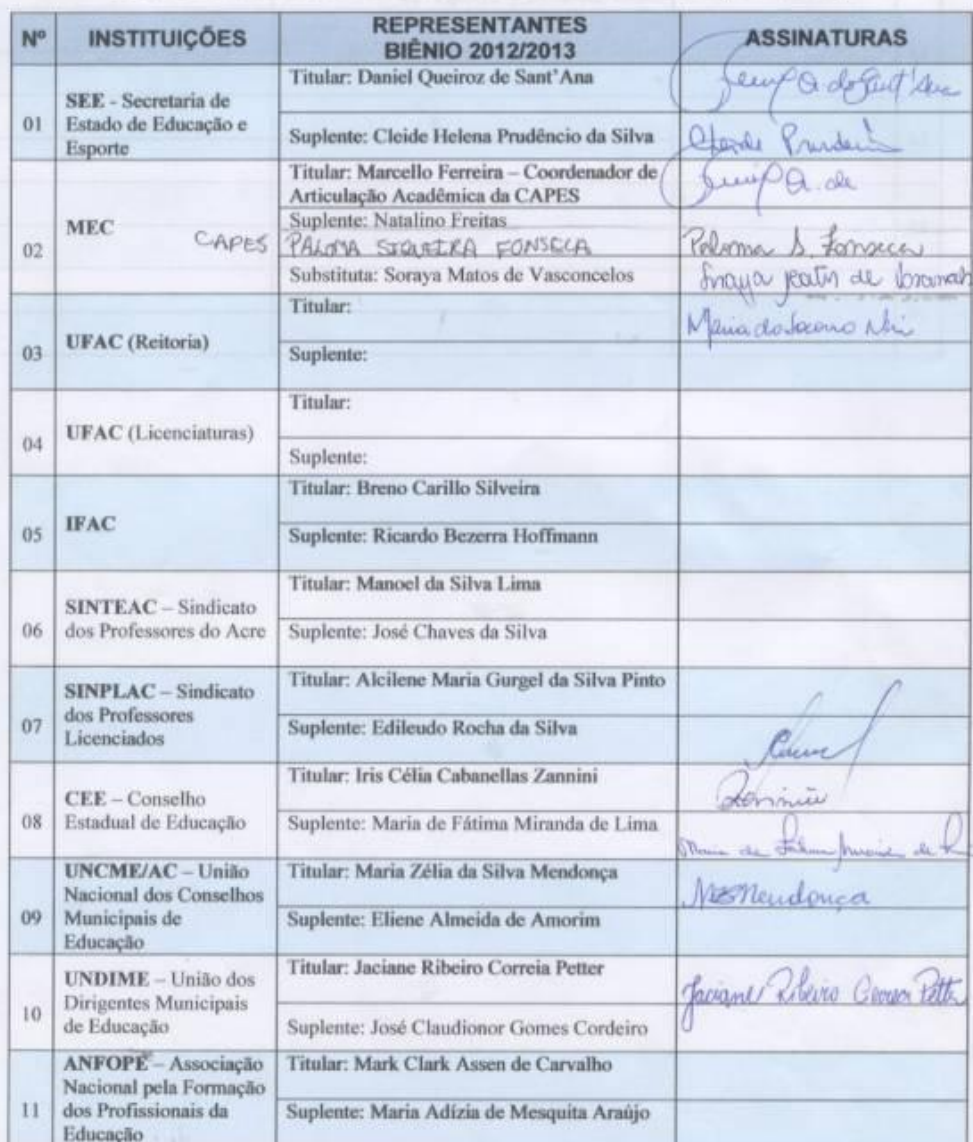 Nº INSTITUIÇÕES REPRESENTANTES BIÊNIO 2012/2013 ASSINATURAS
01
SEE - Secretaria de
Estado de Educação e
Esporte
Titular: Daniel Queiroz de Sant'Ana
Suplente: Cleide Helena Prudêncio da Silva
02
MEC
CAPES
Titular: Marcello Ferreira – Coordenador de
Articulação Acadêmica da CAPES
Suplente: Natalino Freitas
PALOMA SIQUEIRA FONSECA
Paloma S. Fonseca
Substituta: Soraya Matos de Vasconcelos
03
UFAC (Reitoria)
Titular:
Maria do Socorro Neri
Suplente:
04
UFAC (Licenciaturas)
Titular:
Suplente:
05
IFAC
Titular: Breno Carillo Silveira
Suplente: Ricardo Bezerra Hoffmann
06
SINTEAC – Sindicato
dos Professores do Acre
Titular: Manoel da Silva Lima
Suplente: José Chaves da Silva
07
SINPLAC – Sindicato
dos Professores
Licenciados
Titular: Alcilene Maria Gurgel da Silva Pinto
Suplente: Edileudo Rocha da Silva
08
CEE – Conselho
Estadual de Educação
Titular: Iris Célia Cabanellas Zannini
Suplente: Maria de Fátima Miranda de Lima
09
UNCME/AC – União
Nacional dos Conselhos
Municipais de
Educação
Titular: Maria Zélia da Silva Mendonça
Mendonça
Suplente: Eliene Almeida de Amorim
10
UNDIME – União dos
Dirigentes Municipais
de Educação
Titular: Jaciane Ribeiro Correia Petter
Jaciane Ribeiro Correia Petter
Suplente: José Claudionor Gomes Cordeiro
11
ANFOPE – Associação
Nacional pela Formação
dos Profissionais da
Educação
Titular: Mark Clark Assen de Carvalho
Suplente: Maria Adízia de Mesquita Araújo